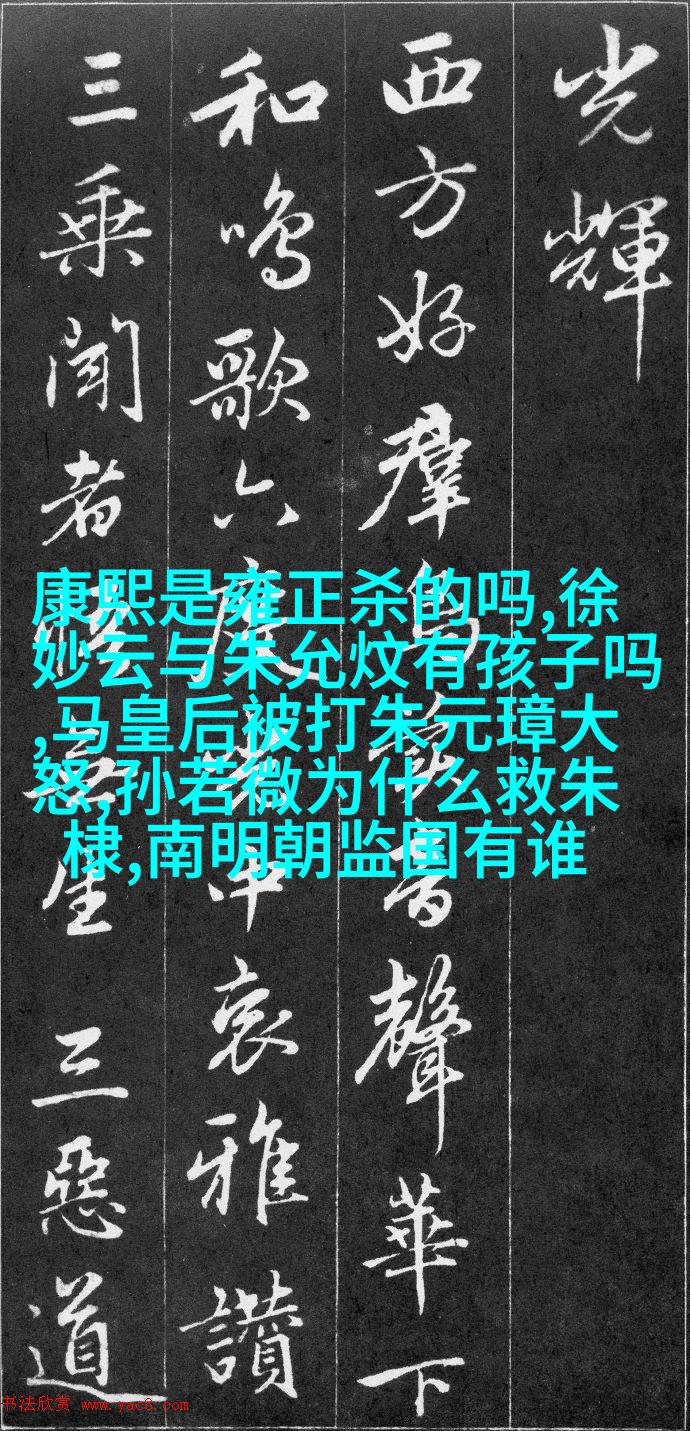 光輝
西方好羣鳥音聲華下
和鳴歌六度中哀雅讚
三乘聞者無生三惡道
康熙是雍正杀的吗,徐
妙云与朱允炆有孩子吗
,马皇后被打朱元璋大
怒,孙若微为什么救朱
棣,南明朝监国有谁
书法欣赏 www.yac8.com